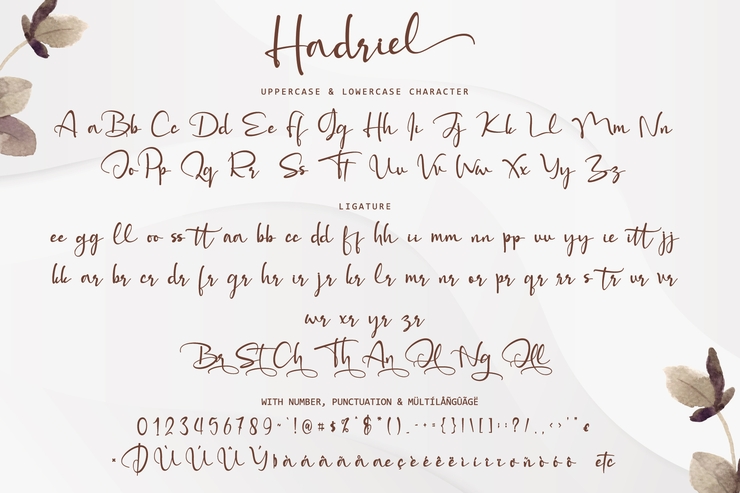 Hadriel
UPPERCASE & LOWERCASE CHARACTER
A a Bb Cc Dd Ee Ff Gg Hh Ii Jj Kk Ll Mm Nn
Oo Pp Qq Rr Ss Tt Uu Vv Ww Xx Yy Zz
LIGATURE
ee gg ll oo ss tt aa bb cc dd ff hh ii mm nn pp uu yy ie itt jj
kk ar br cr dr fr gr hr ir jr kr lr mr nr or pr qr rr s Tr ur vr
wr xr yr zr
Br St Ch Th An Ol Ng All
WITH NUMBER, PUNCTUATION & MÜLTÍLÅÑGÛÃGË
0123456789~`!@#$%^&*()_-+={}|\[]:;?/.,<>'"
Ð Ù Ú Û Ü Ý
etc